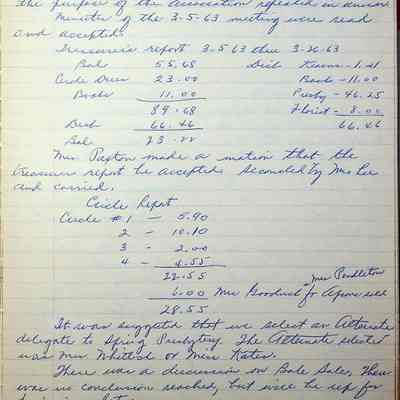 the purpose of the Association repeated in unison
Minutes of the 3-5-63 meeting were read
and accepted.
Treasurer's report 3-5-63 thru 3-26-63
Bal 55.68 Disb Kearns - 1.21
Circle Dues 23.00 Books - 11.00
Books 11.00 Presby - 46.25
89.68 Florist - 8.00
Disb 66.46 66.46
Bal 23.22
Mrs. Paxton made a motion that the
treasurers report be accepted. Seconded by Mrs Lee
and carried.
Circle Report
Circle #1 - 5.90
2 - 10.10
3 - 2.00
4 - 4.55
22.55 Mrs Pendleton
6.00 Mrs Goodrich for Apron sold
28.55
It was suggested that we select an Alternate
delegate to Spring Presbytery. The Alternate elected
was Mrs Whitted or Miss Kates.
There was a discussion on Bake Sales, There
was no conclusion reached, but will be up for